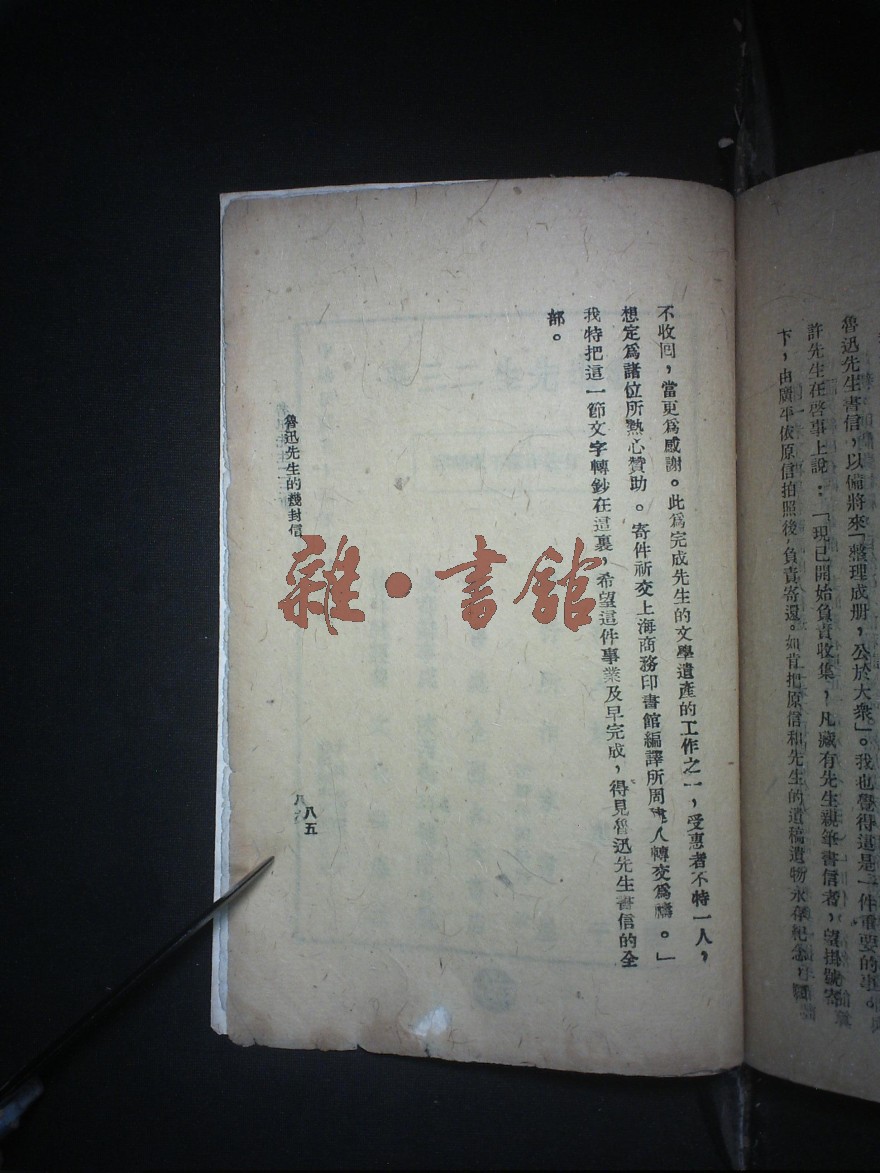 魯迅先生書信，以備將來「整理成册，公於大衆」。我也覺得這是一件重要的事。
許先生在啓事上說：「現已開始負責收集，凡藏有先生親筆書信者，望掛號寄
下，由廣平依原信拍照後，負責寄還。如肯把原信和先生的遺稿遺物永存紀念，
不收回，當更爲感謝。此爲完成先生的文學遺產的工作之一，受惠者不特一人，
想定爲諸位所熱心贊助。寄件祈交上海商務印書館編譯所周建人轉交爲禱。」
我特把這一節文字轉鈔在這裏，希望這件事業及早完成，得見魯迅先生書信的全
部。
魯迅先生的幾封信
八五
雜·書館